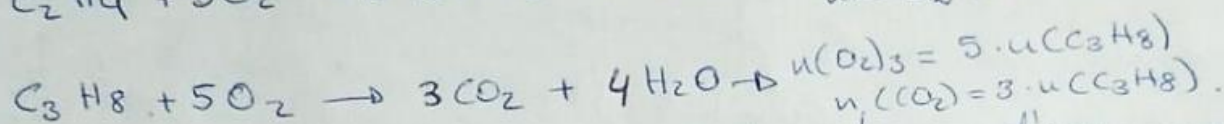 C₃H8 + 5O₂ → 3CO₂ + 4H₂O → n(O₂)₃ = 5·n(C₃H₈)
n(CO₂) = 3·n(C₃H8).